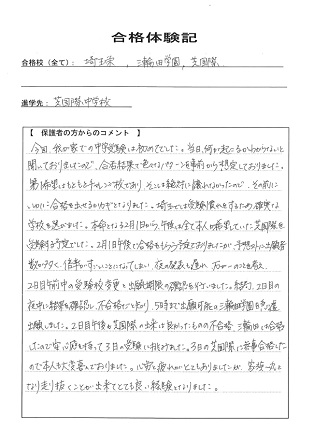 合格体験記
合格校（全て）： 埼玉栄 , 三輪田学園 , 芝国際
進学先： 芝国際中学校
【 保護者の方からのコメント 】
今回、我が家での中学受験は初めてでした。当日、何が起こるかわからないと
聞いておりましたので、合否結果で色々なパターンを事前から想定しておりました。
第1希望はもともとチャレンジ校であり、そこは絶対に譲れなかったので、その前に
いかに合格を出せるかがカギとなりました。埼玉では受験慣れをするため確実な
学校を選びました。本命となる2月1日から、午後は全て本人が希望していた芝国際を
受験する予定でした。2月1日午後に合格をもらう予定でおりましたが、予想外に出願者
数が多く、倍率がすごいことになってしまい、夜の発表も遅れ、万が一のことを考え、
2日目午前中の受験校変更と出願期限の確認を行いました。結局、2日目の
夜中に結果を確認し、不合格だと知り、5時まで出願可能の三輪田学園を急遽
出願しました。2日目午後も芝国際の出来は良かったものの不合格、三輪田は合格
したので安心感を持って3日の受験に挑みました。3日の芝国際に無事合格した
ので本人も大変喜んでおりました。心労と疲れがたまりましたが、家族一丸と
なり走り抜くことが出来てとても良い経験となりました。